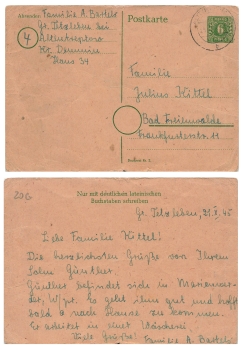 Absender: Familie A. Bartels
Gr. Tetzleben bei
Altentreptow
Kr. Demmin
Haus 34
4
Postkarte
6
Familie
Julius Kittel
Bad Freienwalde
Frankfurterstr. 11
Nur mit deutlichen lateinischen
Buchstaben schreiben
Gr. Tetzleben, 21.X.45
Liebe Familie Kittel!
Die herzlichsten Grüße von Ihrem
Sohn Günther.
Günther befindet sich in Marienwer-
der, W/pr. Es geht ihm gut und hofft
bald nach Hause zu kommen.
Er arbeitet in einer Wäscherei.
Viele Grüße! Familie A. Bartels